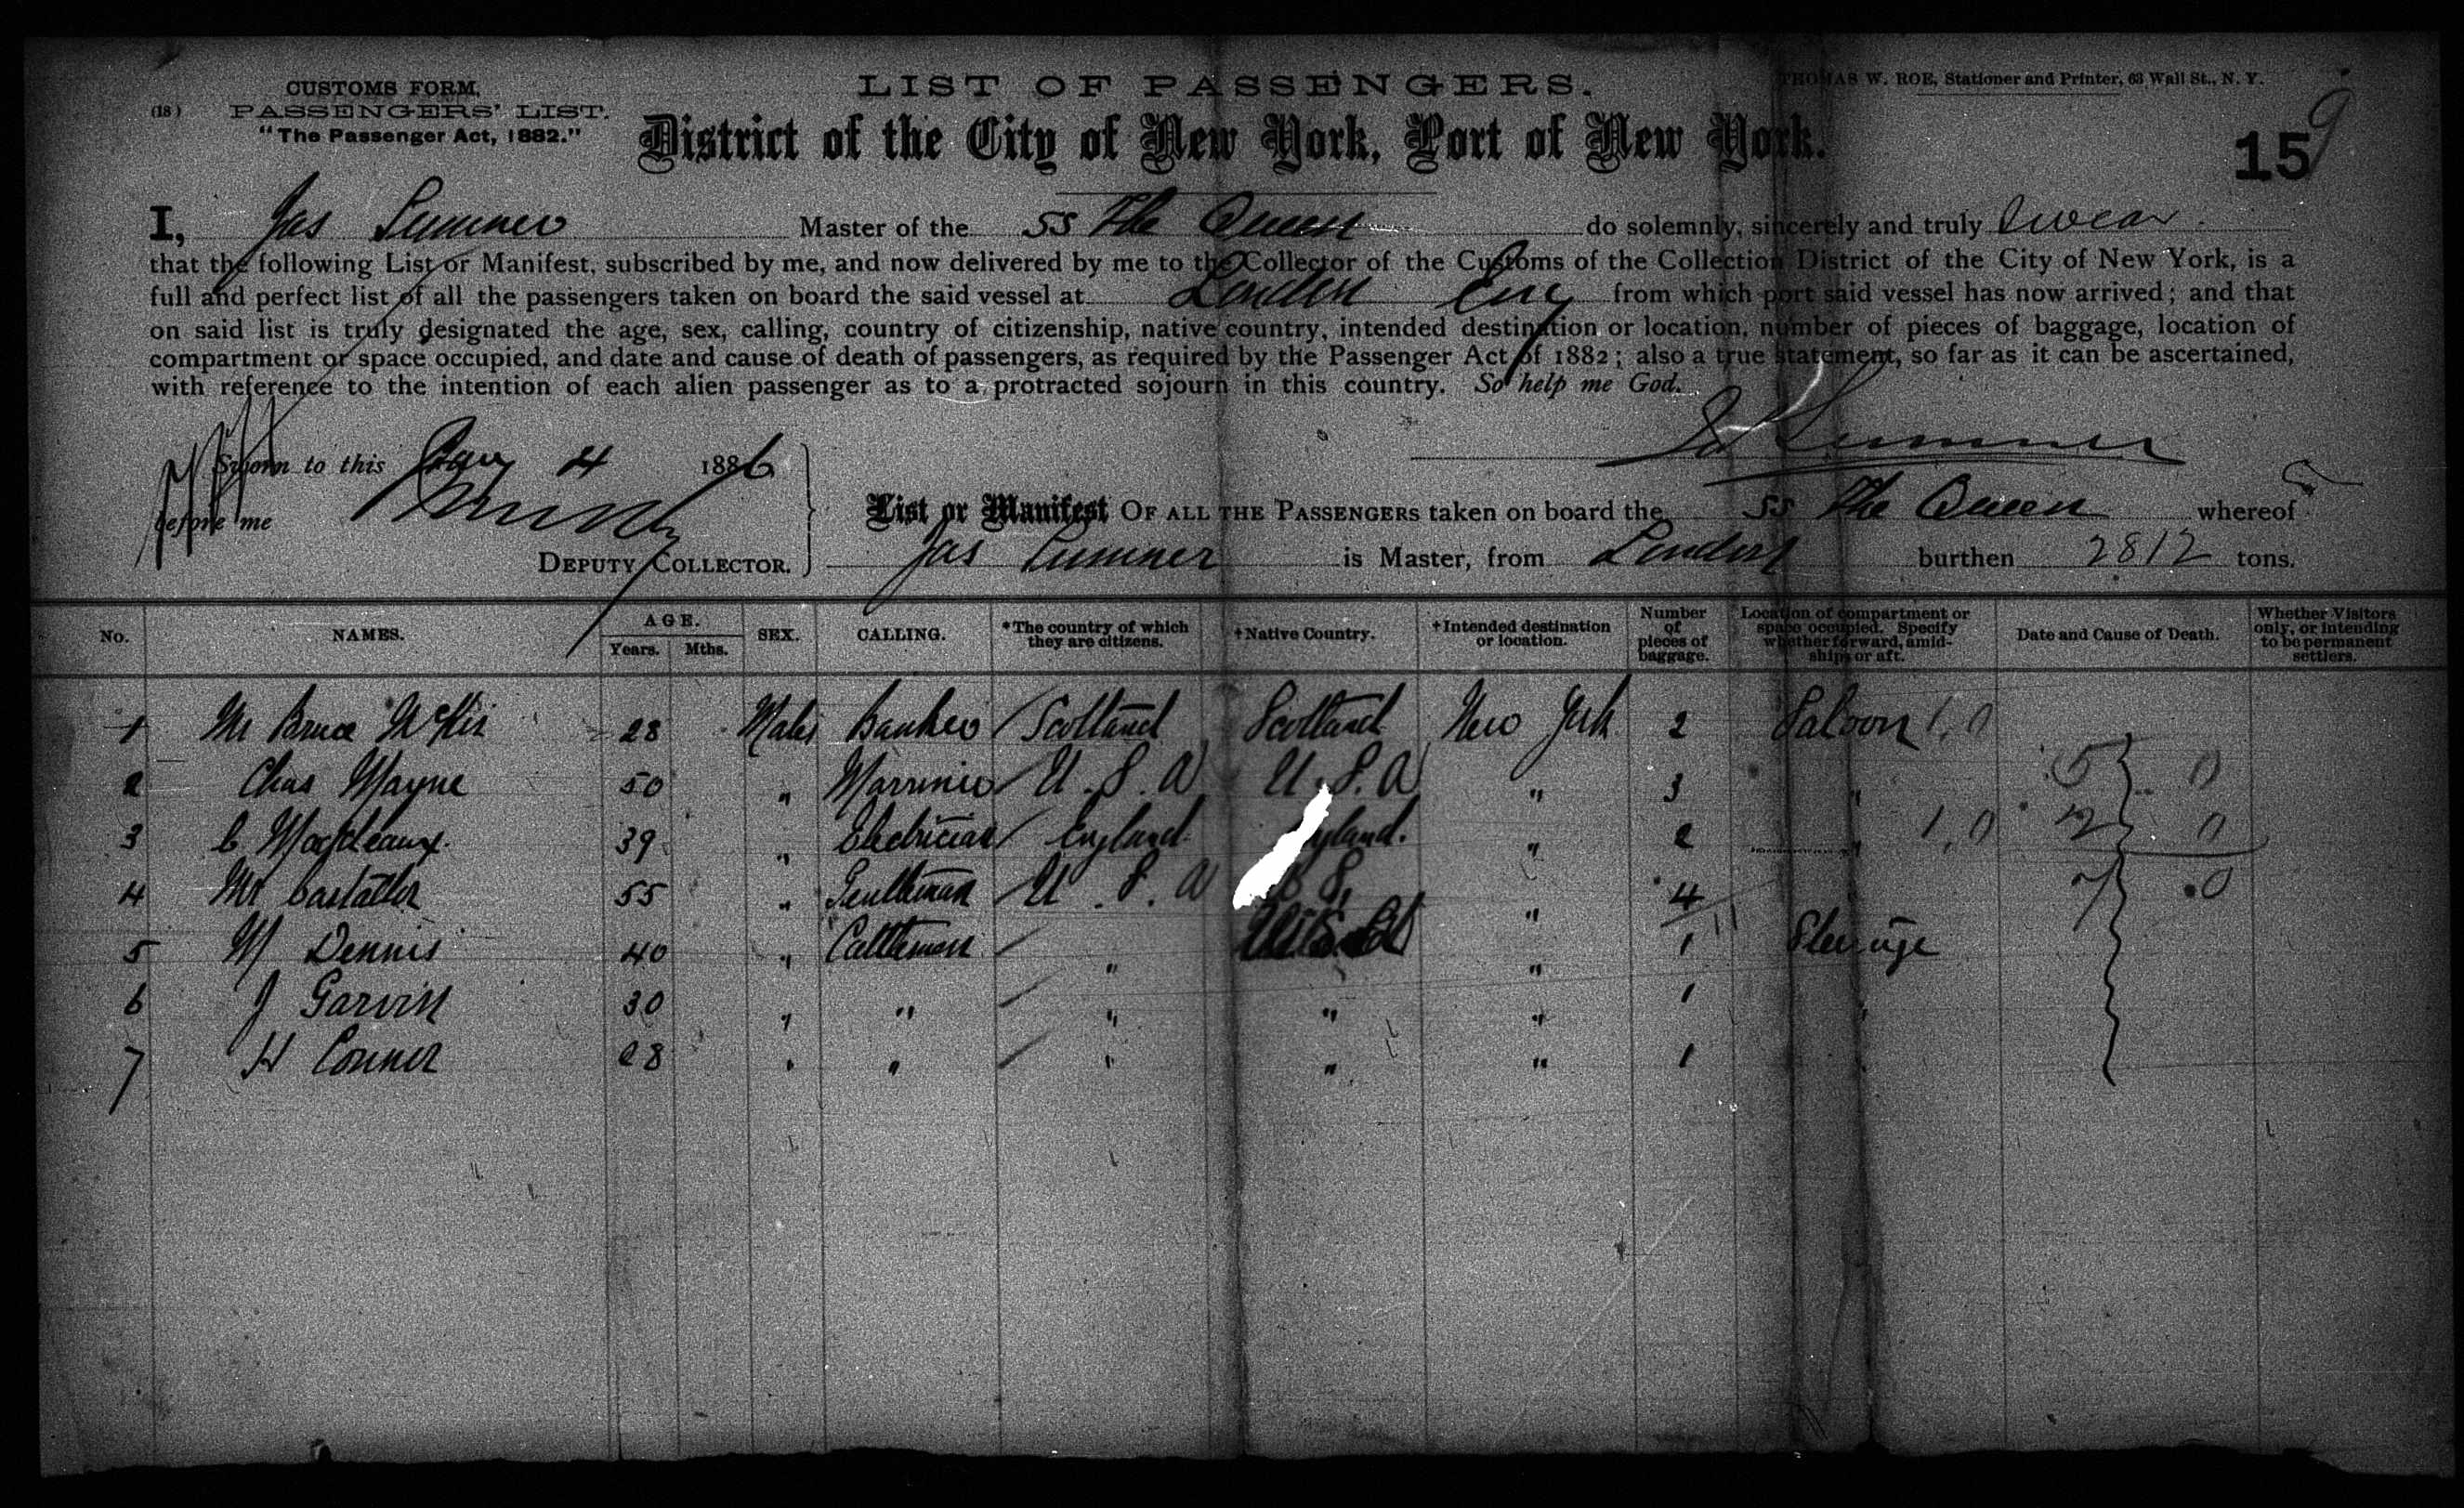 CUSTOMS FORM.
(18) PASSENGERS' LIST.
"The Passenger Act, 1882."
LIST OF PASSENGERS.
THOMAS W. ROE, Stationer and Printer, 63 Wall St., N. Y.
District of the City of New York, Port of New York.
159
I, Jas Sumner Master of the SS The Queen do solemnly, sincerely and truly swear
that the following List or Manifest, subscribed by me, and now delivered by me to the Collector of the Customs of the Collection District of the City of New York, is a
full and perfect list of all the passengers taken on board the said vessel at London Eng from which port said vessel has now arrived; and that
on said list is truly designated the age, sex, calling, country of citizenship, native country, intended destination or location, number of pieces of baggage, location of
compartment or space occupied, and date and cause of death of passengers, as required by the Passenger Act of 1882; also a true statement, so far as it can be ascertained,
with reference to the intention of each alien passenger as to a protracted sojourn in this country. So help me God.
Jas Sumner
Sworn to this Jany 4 1886
before me
DEPUTY COLLECTOR.
List or Manifest OF ALL THE PASSENGERS taken on board the SS The Queen whereof
Jas Sumner is Master, from London burthen 2812 tons.
No. NAMES. AGE. Years. Mths. SEX. CALLING. *The country of which they are citizens. †Native Country. †Intended destination or location. Number of pieces of baggage. Location of compartment or space occupied. Specify whether forward, amidships or aft. Date and Cause of Death. Whether Visitors only, or intending to be permanent settlers.
1 Mr Bruce 28 Males Banker Scotland Scotland New York 2 Saloon 1,0
2 Chas Mayne 50 " U.S.A U.S.A " 3 " 5 0
3 C 39 " Electrician England gland. " 2 " 1,0 2 0
4 Mr 55 " Gentleman U.S.A " 4 7 0
5 M Dennis 40 " Cattlemen " " 1 Steerage
6 J Garvin 30 " " " " " 1 "
7 H Conner 28 " " " " " 1